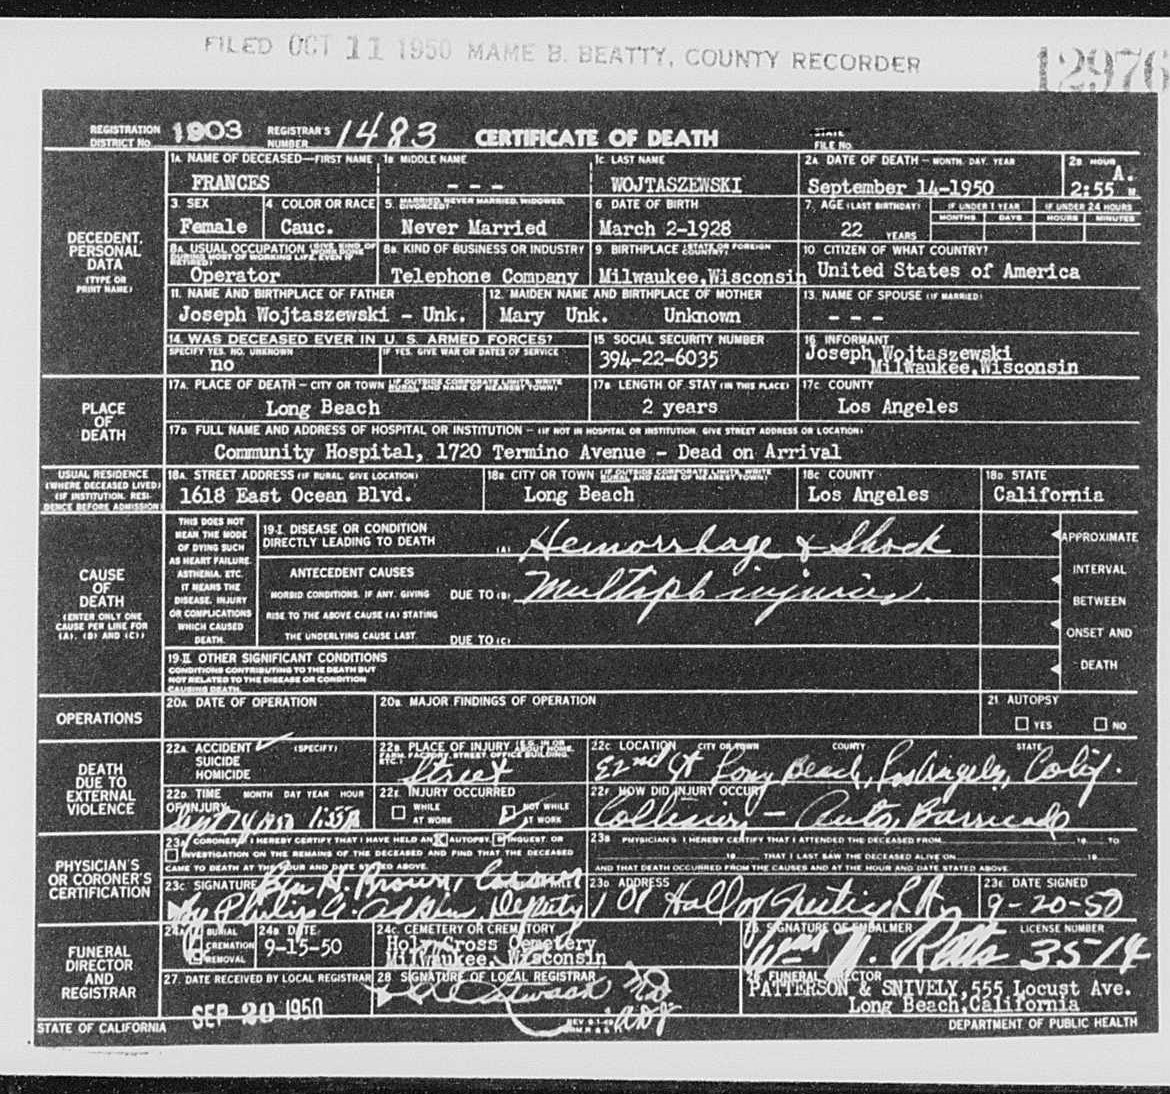 FILED OCT 11 1950 MAME B. BEATTY, COUNTY RECORDER
12976
REGISTRATION DISTRICT No. 1903 REGISTRAR'S NUMBER 1483 CERTIFICATE OF DEATH STATE FILE No.
DECEDENT PERSONAL DATA (TYPE OR PRINT NAME)
1A NAME OF DECEASED—FIRST NAME 1B MIDDLE NAME 1C LAST NAME 2A DATE OF DEATH—MONTH, DAY, YEAR 2B HOUR
FRANCES - - - WOJTASZEWSKI September 14-1950 2:55 A. M.
3 SEX 4 COLOR OR RACE 5 MARRIED, NEVER MARRIED, WIDOWED, DIVORCED? 6 DATE OF BIRTH 7. AGE (LAST BIRTHDAY) IF UNDER 1 YEAR IF UNDER 24 HOURS
MONTHS DAYS HOURS MINUTES
Female Cauc. Never Married March 2-1928 22 YEARS
8A USUAL OCCUPATION (GIVE KIND OF WORK DONE DURING MOST OF WORKING LIFE, EVEN IF RETIRED) 8B KIND OF BUSINESS OR INDUSTRY 9 BIRTHPLACE (STATE OR FOREIGN COUNTRY) 10 CITIZEN OF WHAT COUNTRY?
Operator Telephone Company Milwaukee,Wisconsin United States of America
11. NAME AND BIRTHPLACE OF FATHER 12. MAIDEN NAME AND BIRTHPLACE OF MOTHER 13. NAME OF SPOUSE (IF MARRIED)
Joseph Wojtaszewski - Unk. Mary Unk. Unknown - - -
14. WAS DECEASED EVER IN U. S. ARMED FORCES? 15 SOCIAL SECURITY NUMBER 16 INFORMANT
SPECIFY YES, NO, UNKNOWN IF YES, GIVE WAR OR DATES OF SERVICE
no 394-22-6035 Joseph Wojtaszewski
Milwaukee,Wisconsin
PLACE OF DEATH
17A. PLACE OF DEATH—CITY OR TOWN (IF OUTSIDE CORPORATE LIMITS, WRITE RURAL AND NAME OF NEAREST TOWN) 17B LENGTH OF STAY (IN THIS PLACE) 17C COUNTY
Long Beach 2 years Los Angeles
17D FULL NAME AND ADDRESS OF HOSPITAL OR INSTITUTION—(IF NOT IN HOSPITAL OR INSTITUTION, GIVE STREET ADDRESS OR LOCATION)
Community Hospital, 1720 Termino Avenue - Dead on Arrival
USUAL RESIDENCE (WHERE DECEASED LIVED) (IF INSTITUTION, RESIDENCE BEFORE ADMISSION)
18A. STREET ADDRESS (IF RURAL GIVE LOCATION) 18B CITY OR TOWN (IF OUTSIDE CORPORATE LIMITS, WRITE RURAL AND NAME OF NEAREST TOWN) 18C COUNTY 18D STATE
1618 East Ocean Blvd. Long Beach Los Angeles California
CAUSE OF DEATH (ENTER ONLY ONE CAUSE PER LINE FOR (A), (B) AND (C))
THIS DOES NOT MEAN THE MODE OF DYING SUCH AS HEART FAILURE, ASTHENIA, ETC. IT MEANS THE DISEASE, INJURY OR COMPLICATIONS WHICH CAUSED DEATH.
19-I. DISEASE OR CONDITION DIRECTLY LEADING TO DEATH (A) Hemorrhage & Shock
ANTECEDENT CAUSES
MORBID CONDITIONS, IF ANY, GIVING DUE TO (B) Multiple injuries.
RISE TO THE ABOVE CAUSE (A) STATING
THE UNDERLYING CAUSE LAST. DUE TO (C)
APPROXIMATE INTERVAL BETWEEN ONSET AND DEATH
19-II. OTHER SIGNIFICANT CONDITIONS
CONDITIONS CONTRIBUTING TO THE DEATH BUT NOT RELATED TO THE DISEASE OR CONDITION CAUSING DEATH.
OPERATIONS
20A DATE OF OPERATION 20B MAJOR FINDINGS OF OPERATION 21 AUTOPSY
YES NO
DEATH DUE TO EXTERNAL VIOLENCE
22A ACCIDENT (SPECIFY) SUICIDE HOMICIDE 22B PLACE OF INJURY 22C LOCATION CITY OR TOWN COUNTY STATE
Street 52nd St Long Beach, Los Angeles, Calif.
22D TIME OF INJURY MONTH DAY YEAR HOUR 22E INJURY OCCURRED 22F HOW DID INJURY OCCUR?
Sept 14 1950 1:55A WHILE AT WORK NOT WHILE AT WORK Collision - Auto, Barricade
PHYSICIAN'S OR CORONER'S CERTIFICATION
23A CORONER: I HEREBY CERTIFY THAT I HAVE HELD AN AUTOPSY, INQUEST OR INVESTIGATION ON THE REMAINS OF THE DECEASED AND FIND THAT THE DECEASED CAME TO DEATH AT THE HOUR AND DATE STATED ABOVE.
23B PHYSICIAN'S: I HEREBY CERTIFY THAT I ATTENDED THE DECEASED FROM 19 TO 19 THAT I LAST SAW THE DECEASED ALIVE ON 19 AND THAT DEATH OCCURRED FROM THE CAUSES AND AT THE HOUR AND DATE STATED ABOVE
23C SIGNATURE 23D ADDRESS 23E DATE SIGNED
Ben H. Brown, Coroner
By Philip A. Deputy 101 Hall of Justice L A 9-20-50
FUNERAL DIRECTOR AND REGISTRAR
24A BURIAL CREMATION REMOVAL 24B DATE 24C. CEMETERY OR CREMATORY 25 SIGNATURE OF EMBALMER LICENSE NUMBER
9-15-50 Holy Cross Cemetery
Milwaukee, Wisconsin Wm N. 3514
27. DATE RECEIVED BY LOCAL REGISTRAR 28 SIGNATURE OF LOCAL REGISTRAR 26 FUNERAL DIRECTOR
SEP 20 1950 MD PATTERSON & SNIVELY,555 Locust Ave.
Long Beach,California
STATE OF CALIFORNIA DEPARTMENT OF PUBLIC HEALTH